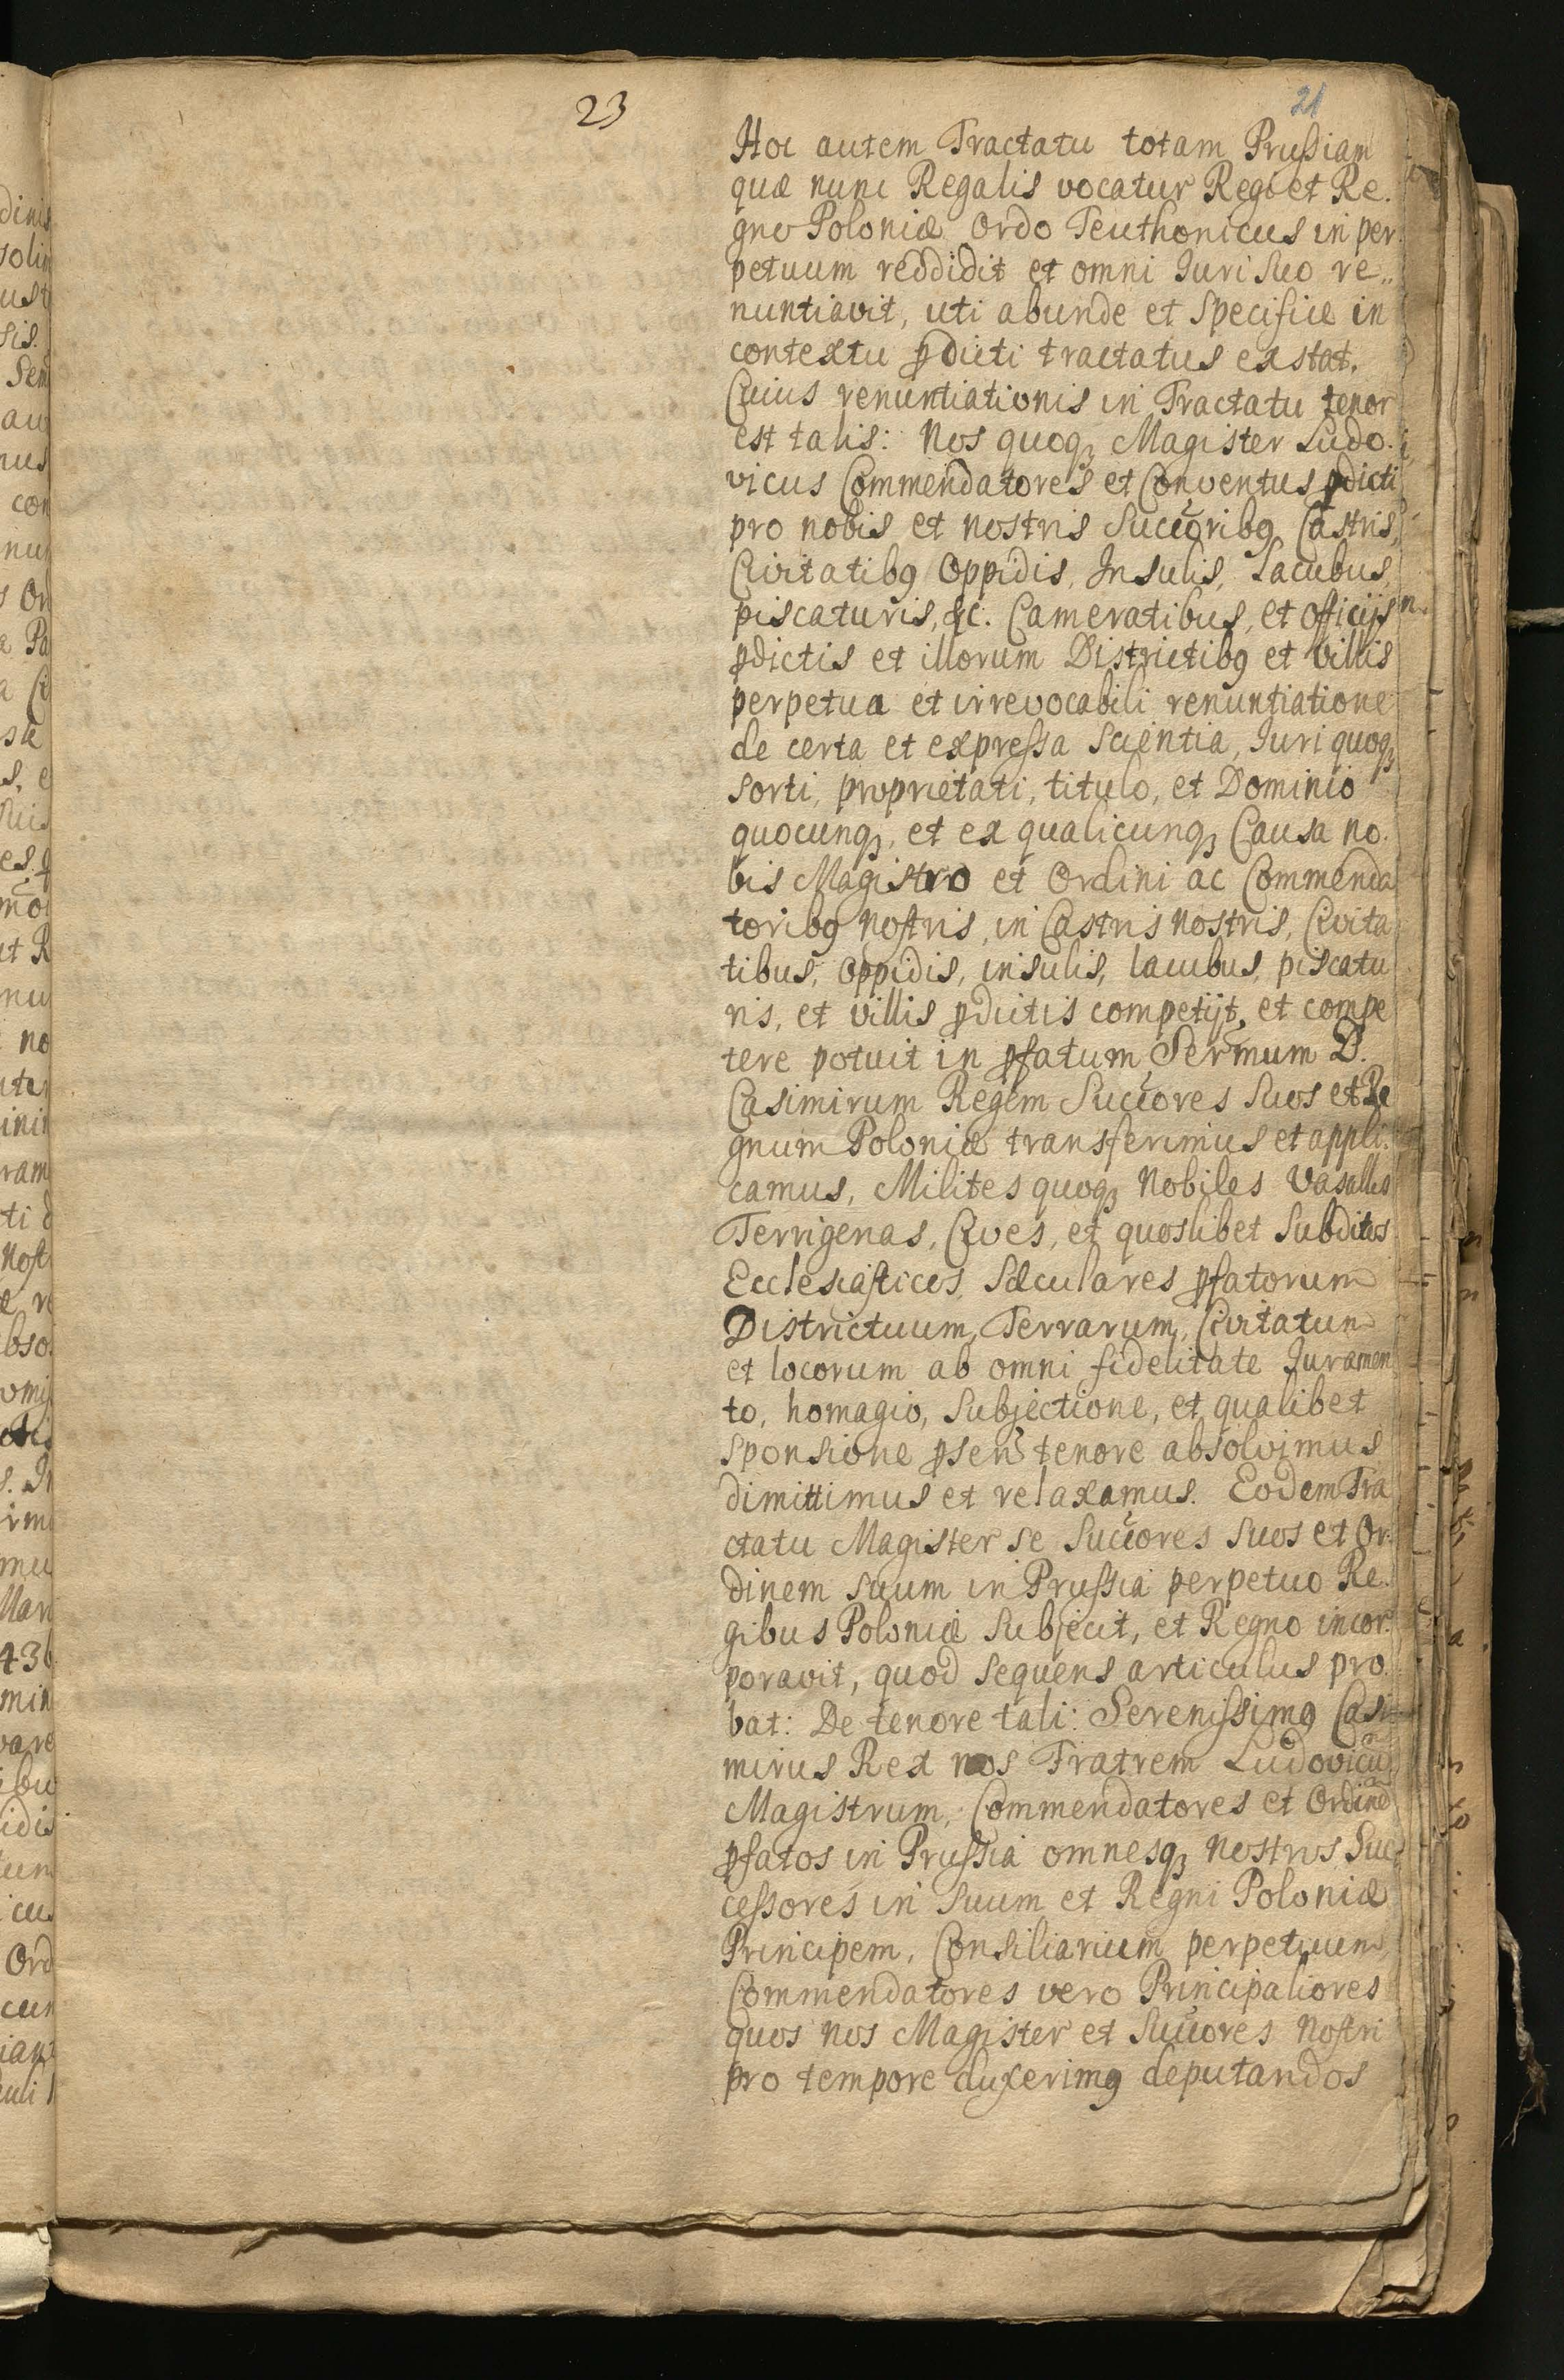 23
21
Hoc autem Tractatu totam Prussiam
quæ nunc Regalis vocatur Regi et Re.
gno Poloniæ Ordo Teuthonicus in per
petuum reddidit et omni Iuri suo re„
nuntiavit, uti abunde et specifice in
contextu pdicti tractatus exstat.
Cuius renuntiationis in Tractatu tenor
est talis: Nos quoq Magister Ludo.
vicus Commendatores et Conventus pdicti
pro nobis et nostris Succoribg Castris,
Civitatibg Oppidis, Insulis, Lacubus,
piscaturis, &c. Cameratibus, et officijs
pdictis et illorum Districtibg et Villis
perpetua et irrevocabili renuntiatione
de certa et expressa scientia, Iuri quoq
sorti, proprietati, titulo, et Dominio
quocunq, et ex qualicunq Causa no.
bis Magistro et Ordini ac Commenda
toribg nostris, in Castris nostris, Civita
tibus, Oppidis, insulis, lacubus, piscatu
ris, et villis pdictis competijt, et compe
tere potuit in pfatum Sermum D.
Casimirum Regem Succores suos et Re
gnum Poloniæ transferimus et appli.
camus, Milites quoq Nobiles Vasallos
Terrigenas, Cives, et quoslibet subditos
Ecclesiasticos, Sæculares pfatorum
Districtuum, Terrarum, Civitatum
et locorum ab omni fidelitate Iuramen
to, homagio, subjectione, et qualibet
sponsione psen tenore absolvimus
dimittimus et relaxamus. Eodem Tra
ctatu Magister se Succores suos et Or.
dinem suum in Prussia perpetuo Re.
gibus Poloniæ subjecit, et Regno incor.
poravit, quod sequens articulus pro
bat: De tenore tali: Serenissimg Casi
mirus Rex nos Fratrem Ludovicu
Magistrum, Commendatores et Ordine
pfatos in Prussia omnesq nostros Suc
cessores in suum et Regni Poloniæ
Principem, Consiliarium perpetuum
Commendatores vero Principaliores
quos nos Magister et Succores nostri
pro tempore duxerimg deputandos